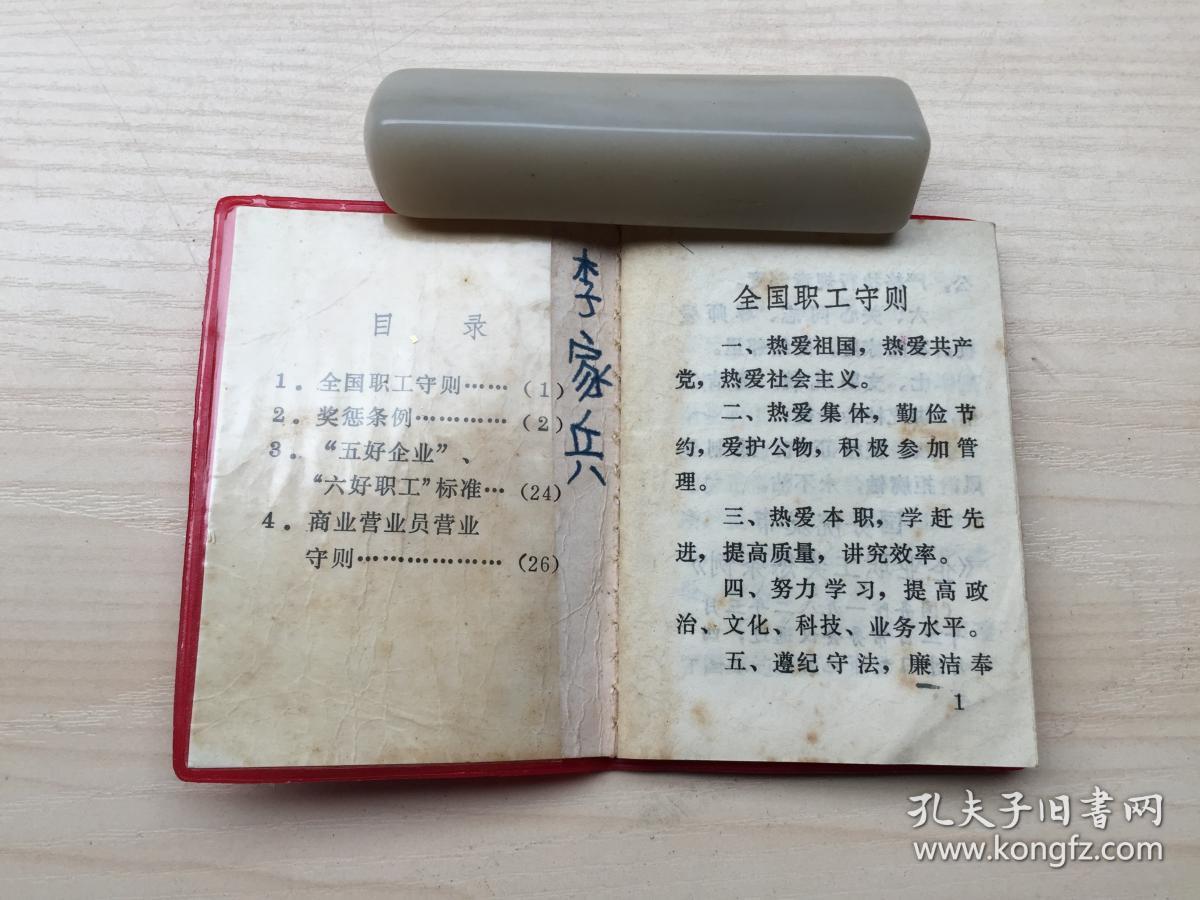 目 录
1．全国职工守则……(1)
2．奖惩条例…………(2)
3．“五好企业”、
“六好职工”标准…(24)
4．商业营业员营业
守则………………(26)
李家兵
全国职工守则
一、热爱祖国，热爱共产
党，热爱社会主义。
二、热爱集体，勤俭节
约，爱护公物，积极参加管
理。
三、热爱本职，学赶先
进，提高质量，讲究效率。
四、努力学习，提高政
治、文化、科技、业务水平。
五、遵纪守法，廉洁奉
1
孔夫子旧书网
www.kongfz.com